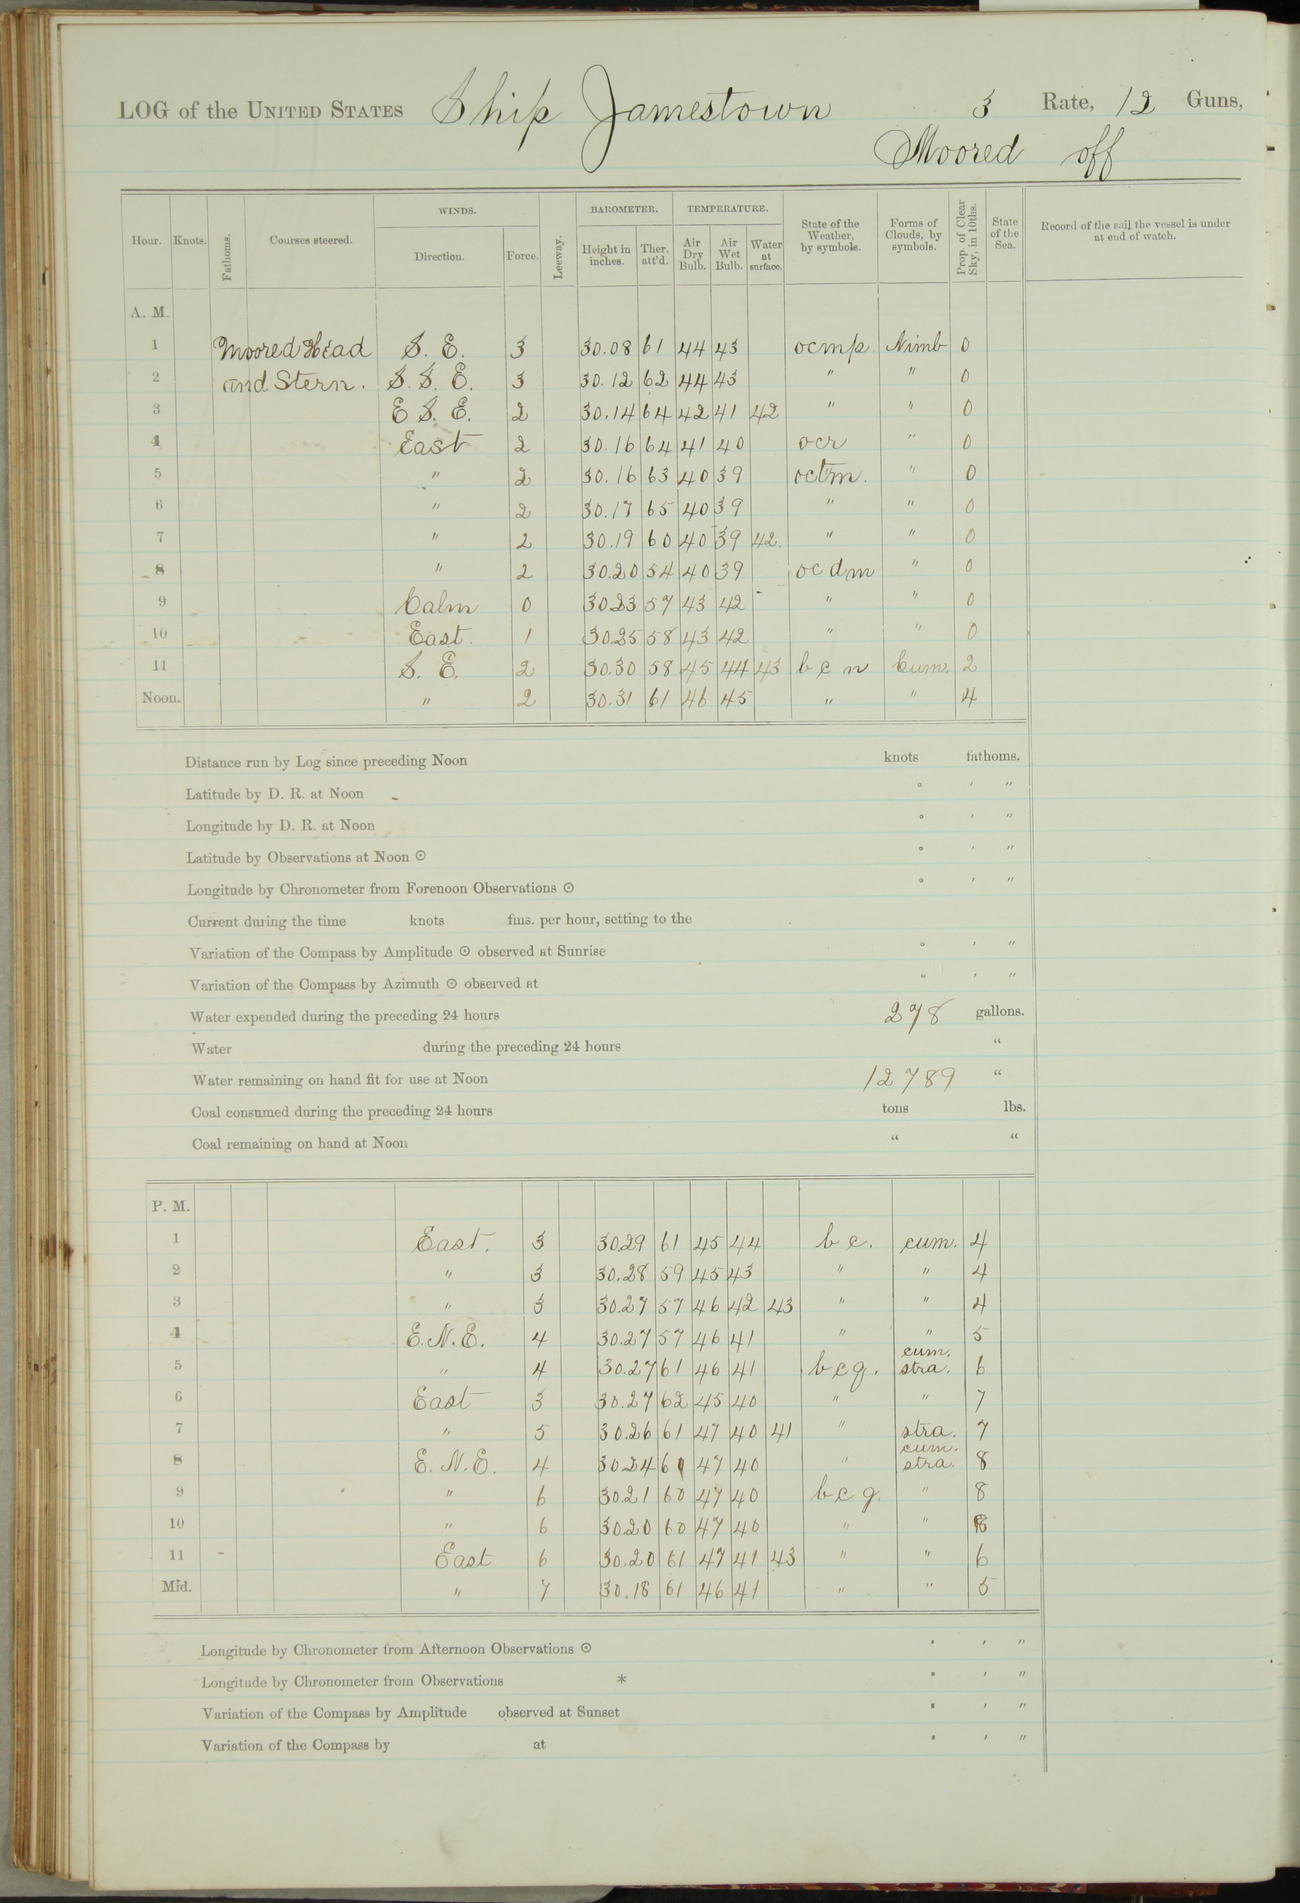 LOG of the UNITED STATES Ship Jamestown 3 Rate, 12 Guns,
Moored off
Hour. Knots. Fathoms. Courses steered. WINDS. Direction. Force. Leeway. BAROMETER. Height in inches. Ther. att'd. TEMPERATURE. Air Dry Bulb. Air Wet Bulb. Water at surface. State of the Weather, by symbols. Forms of Clouds, by symbols. Prop. of Clear Sky, in 10ths. State of the Sea. Record of the sail the vessel is under at end of watch.
A. M.
1 Moored Head S. E. 3 30.08 61 44 43 ocmp Nimb 0
2 and Stern. S. S. E. 3 30.12 62 44 43 " " 0
3 E S. E. 2 30.14 64 42 41 42 " " 0
4 East 2 30.16 64 41 40 ocr " 0
5 " 2 30.16 63 40 39 octm. " 0
6 " 2 30.17 65 40 39 " " 0
7 " 2 30.19 60 40 39 42. " " 0
8 " 2 30.20 54 40 39 ocdm " 0
9 Calm 0 30.23 57 43 42 " " 0
10 East. 1 30.25 58 43 42 " " 0
11 S. E. 2 30.30 58 45 44 43 b c m Cum. 2
Noon. " 2 30.31 61 46 45 " " 4
Distance run by Log since preceding Noon knots fathoms.
Latitude by D. R. at Noon ° ′ ″
Longitude by D. R. at Noon ° ′ ″
Latitude by Observations at Noon ⊙ ° ′ ″
Longitude by Chronometer from Forenoon Observations ⊙ ° ′ ″
Current during the time knots fms. per hour, setting to the
Variation of the Compass by Amplitude ⊙ observed at Sunrise ° ′ ″
Variation of the Compass by Azimuth ⊙ observed at ° ′ ″
Water expended during the preceding 24 hours 278 gallons.
Water during the preceding 24 hours "
Water remaining on hand fit for use at Noon 12789 "
Coal consumed during the preceding 24 hours tons lbs.
Coal remaining on hand at Noon " "
P. M.
1 East. 3 30.29 61 45 44 b c. cum. 4
2 " 3 30.28 59 45 43 " " 4
3 " 3 30.27 57 46 42 43 " " 4
4 E. N. E. 4 30.27 57 46 41 " " 5
5 " 4 30.27 61 46 41 b c q. cum. stra. 6
6 East 3 30.27 62 45 40 " " 7
7 " 5 30.26 61 47 40 41 " stra. 7
8 E. N. E. 4 30.24 60 47 40 " cum. stra. 8
9 " 6 30.21 60 47 40 b c q. " 8
10 " 6 30.20 60 47 40 " " 8
11 East 6 30.20 61 47 41 43 " " 6
Mid. " 7 30.18 61 46 41 " " 5
Longitude by Chronometer from Afternoon Observations ⊙ ° ′ ″
Longitude by Chronometer from Observations * ° ′ ″
Variation of the Compass by Amplitude observed at Sunset ° ′ ″
Variation of the Compass by at ° ′ ″